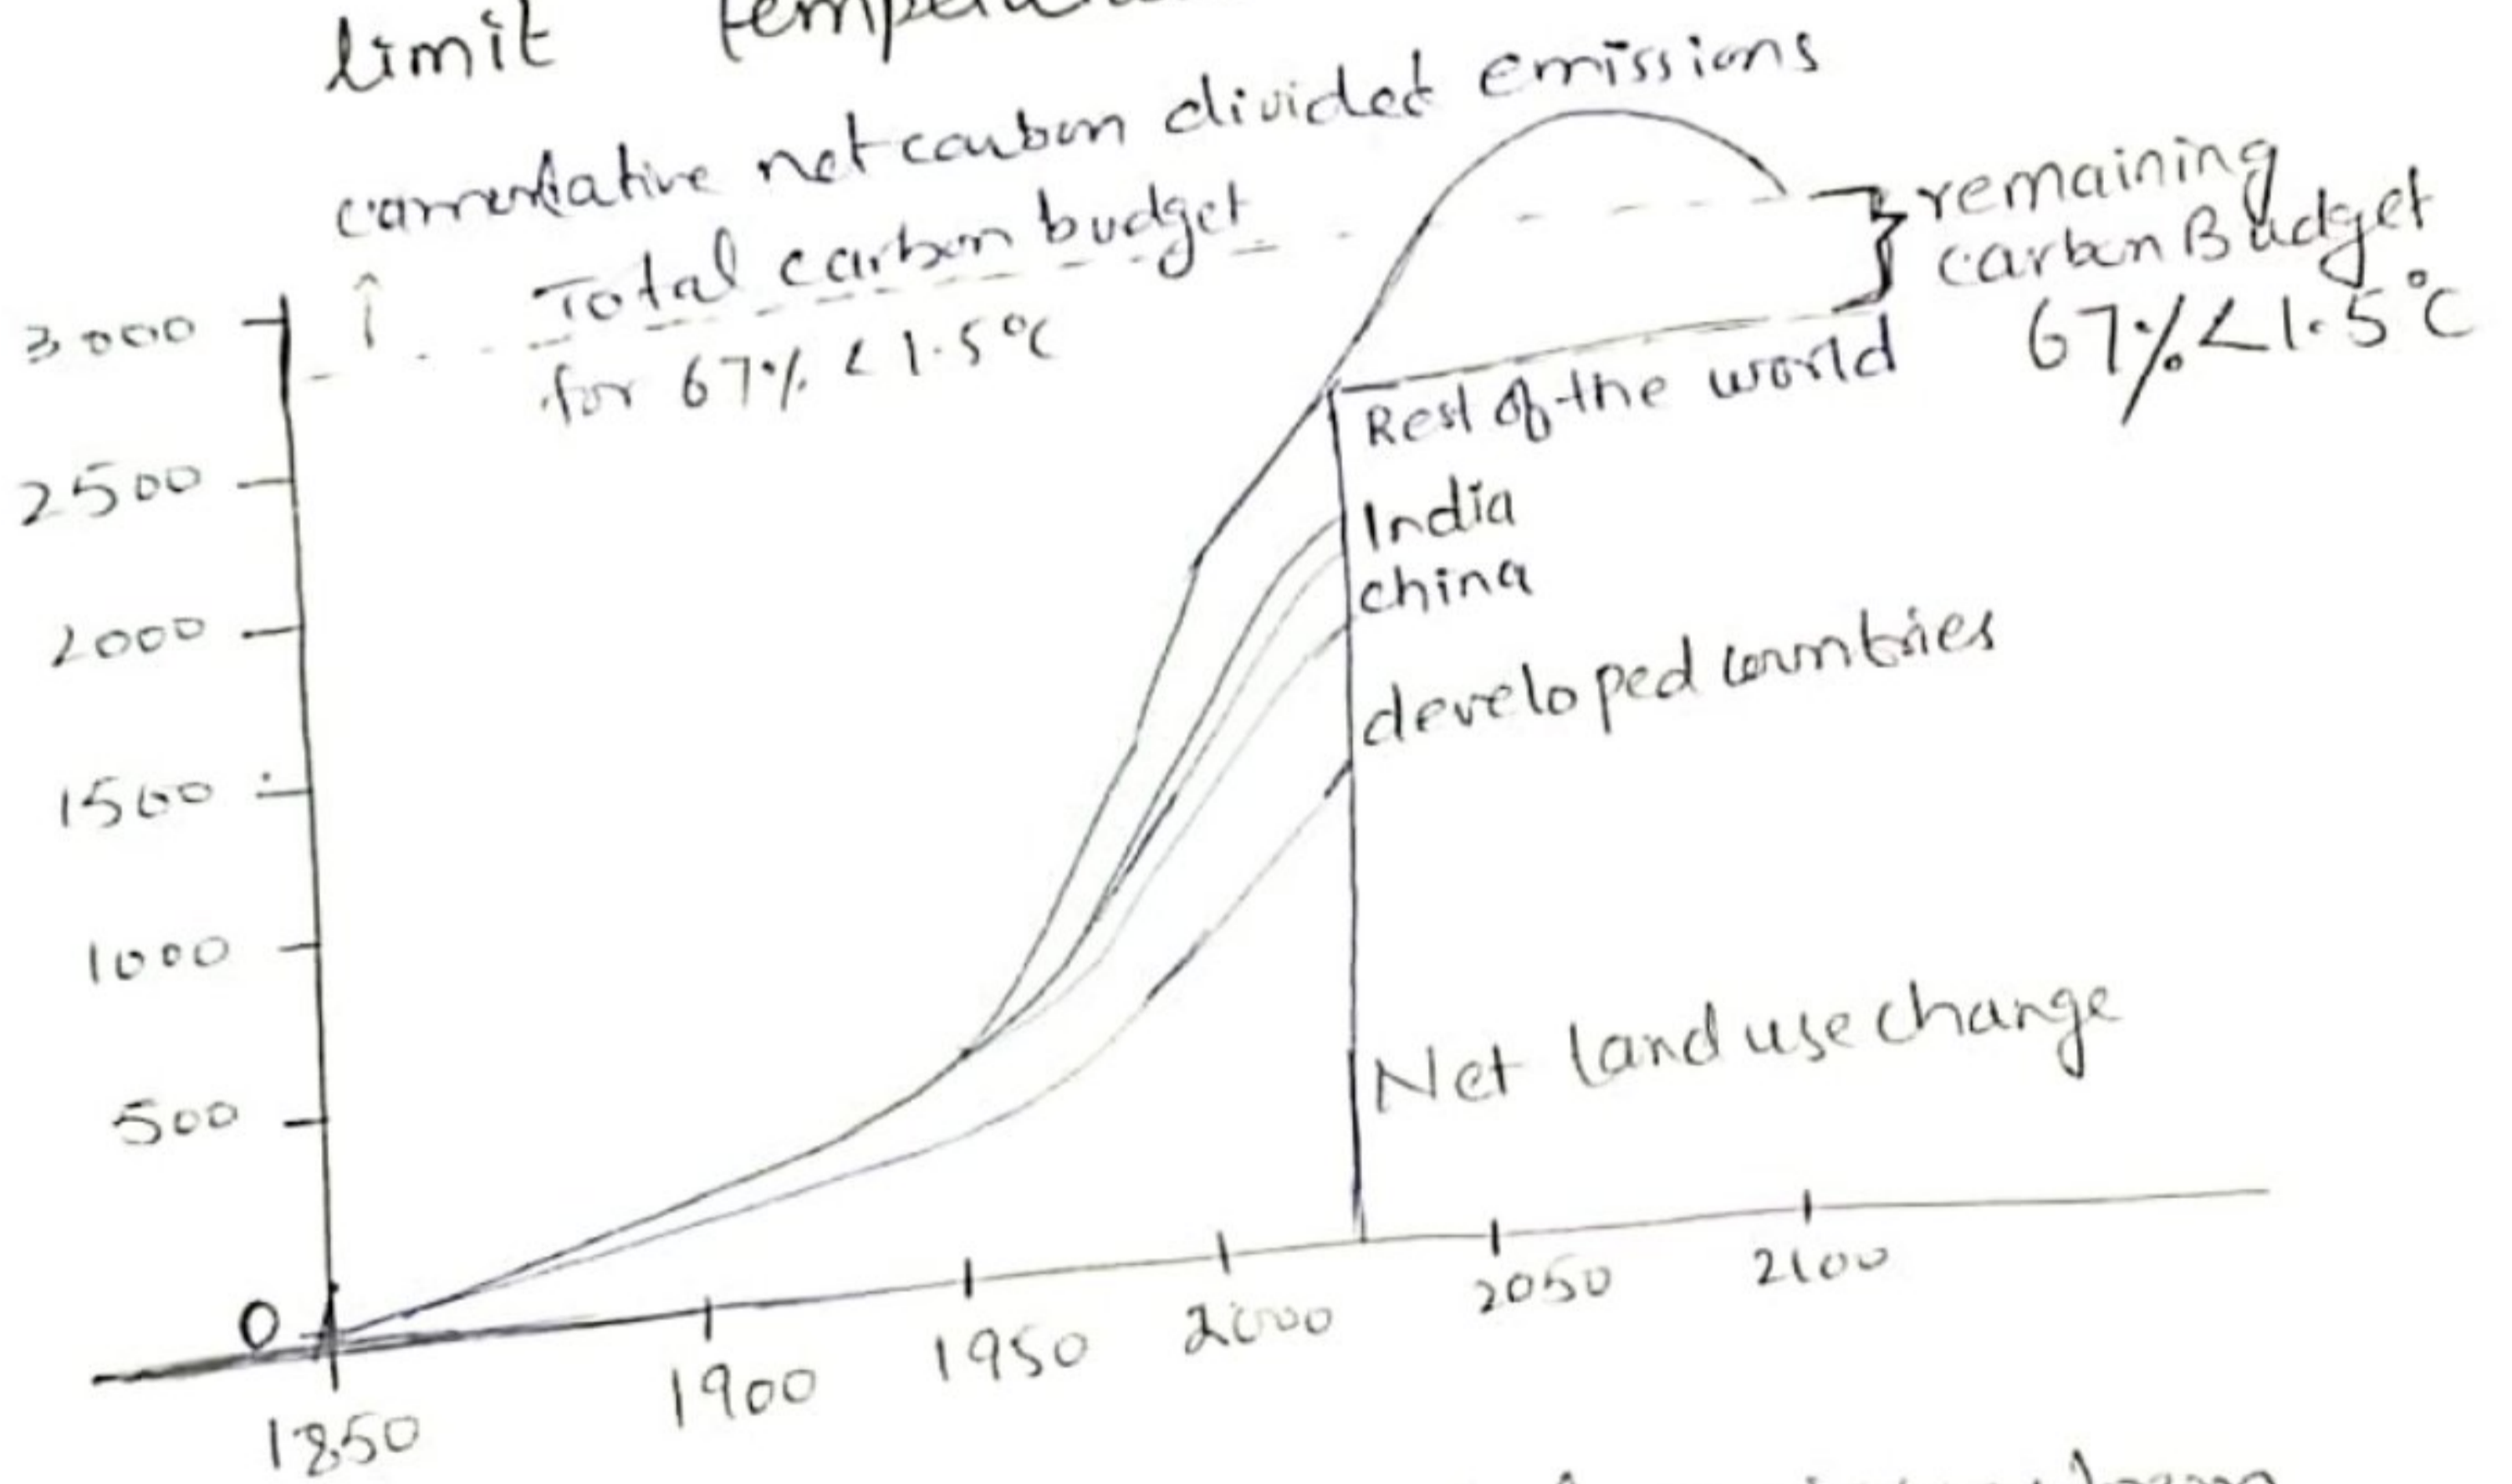 limit
cumulative net carbon divided emissions
Total carbon budget
for 67% < 1.5°C
remaining
carbon Budget
67% < 1.5°C
3000
2500
2000
1500
1000
500
0
Rest of the world
India
china
developed countries
Net land use change
1850
1900
1950
2000
2050
2100